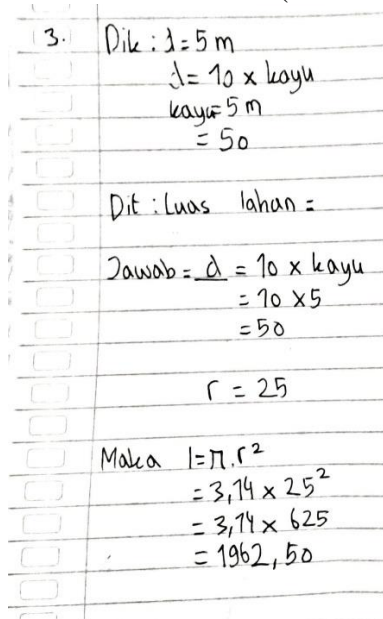 3. Dik : d = 5 m
d = 10 x kayu
kayu = 5 m
= 50
Dit : Luas lahan =
Jawab = d = 10 x kayu
= 10 x 5
= 50
r = 25
Maka l = π . r²
= 3,14 x 25²
= 3,14 x 625
= 1962,50